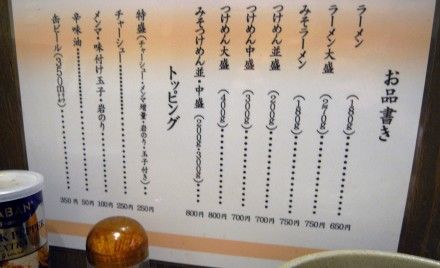 お品書き
ラーメン(180g)……………650円
ラーメン大盛(270g)……………750円
みそラーメン(180g)……………750円
つけめん並盛(200g)……………700円
つけめん中盛(300g)……………700円
つけめん大盛(400g)……………800円
みそつけめん並・中盛(200g・300g)……800円
トッピング
特盛(チャーシュー・メンマ増量・岩のり・玉子付き)…250円
チャーシュー……………250円
メンマ・味付け玉子・岩のり……………100円
辛味油……………50円
缶ビール(350ml)……………350円